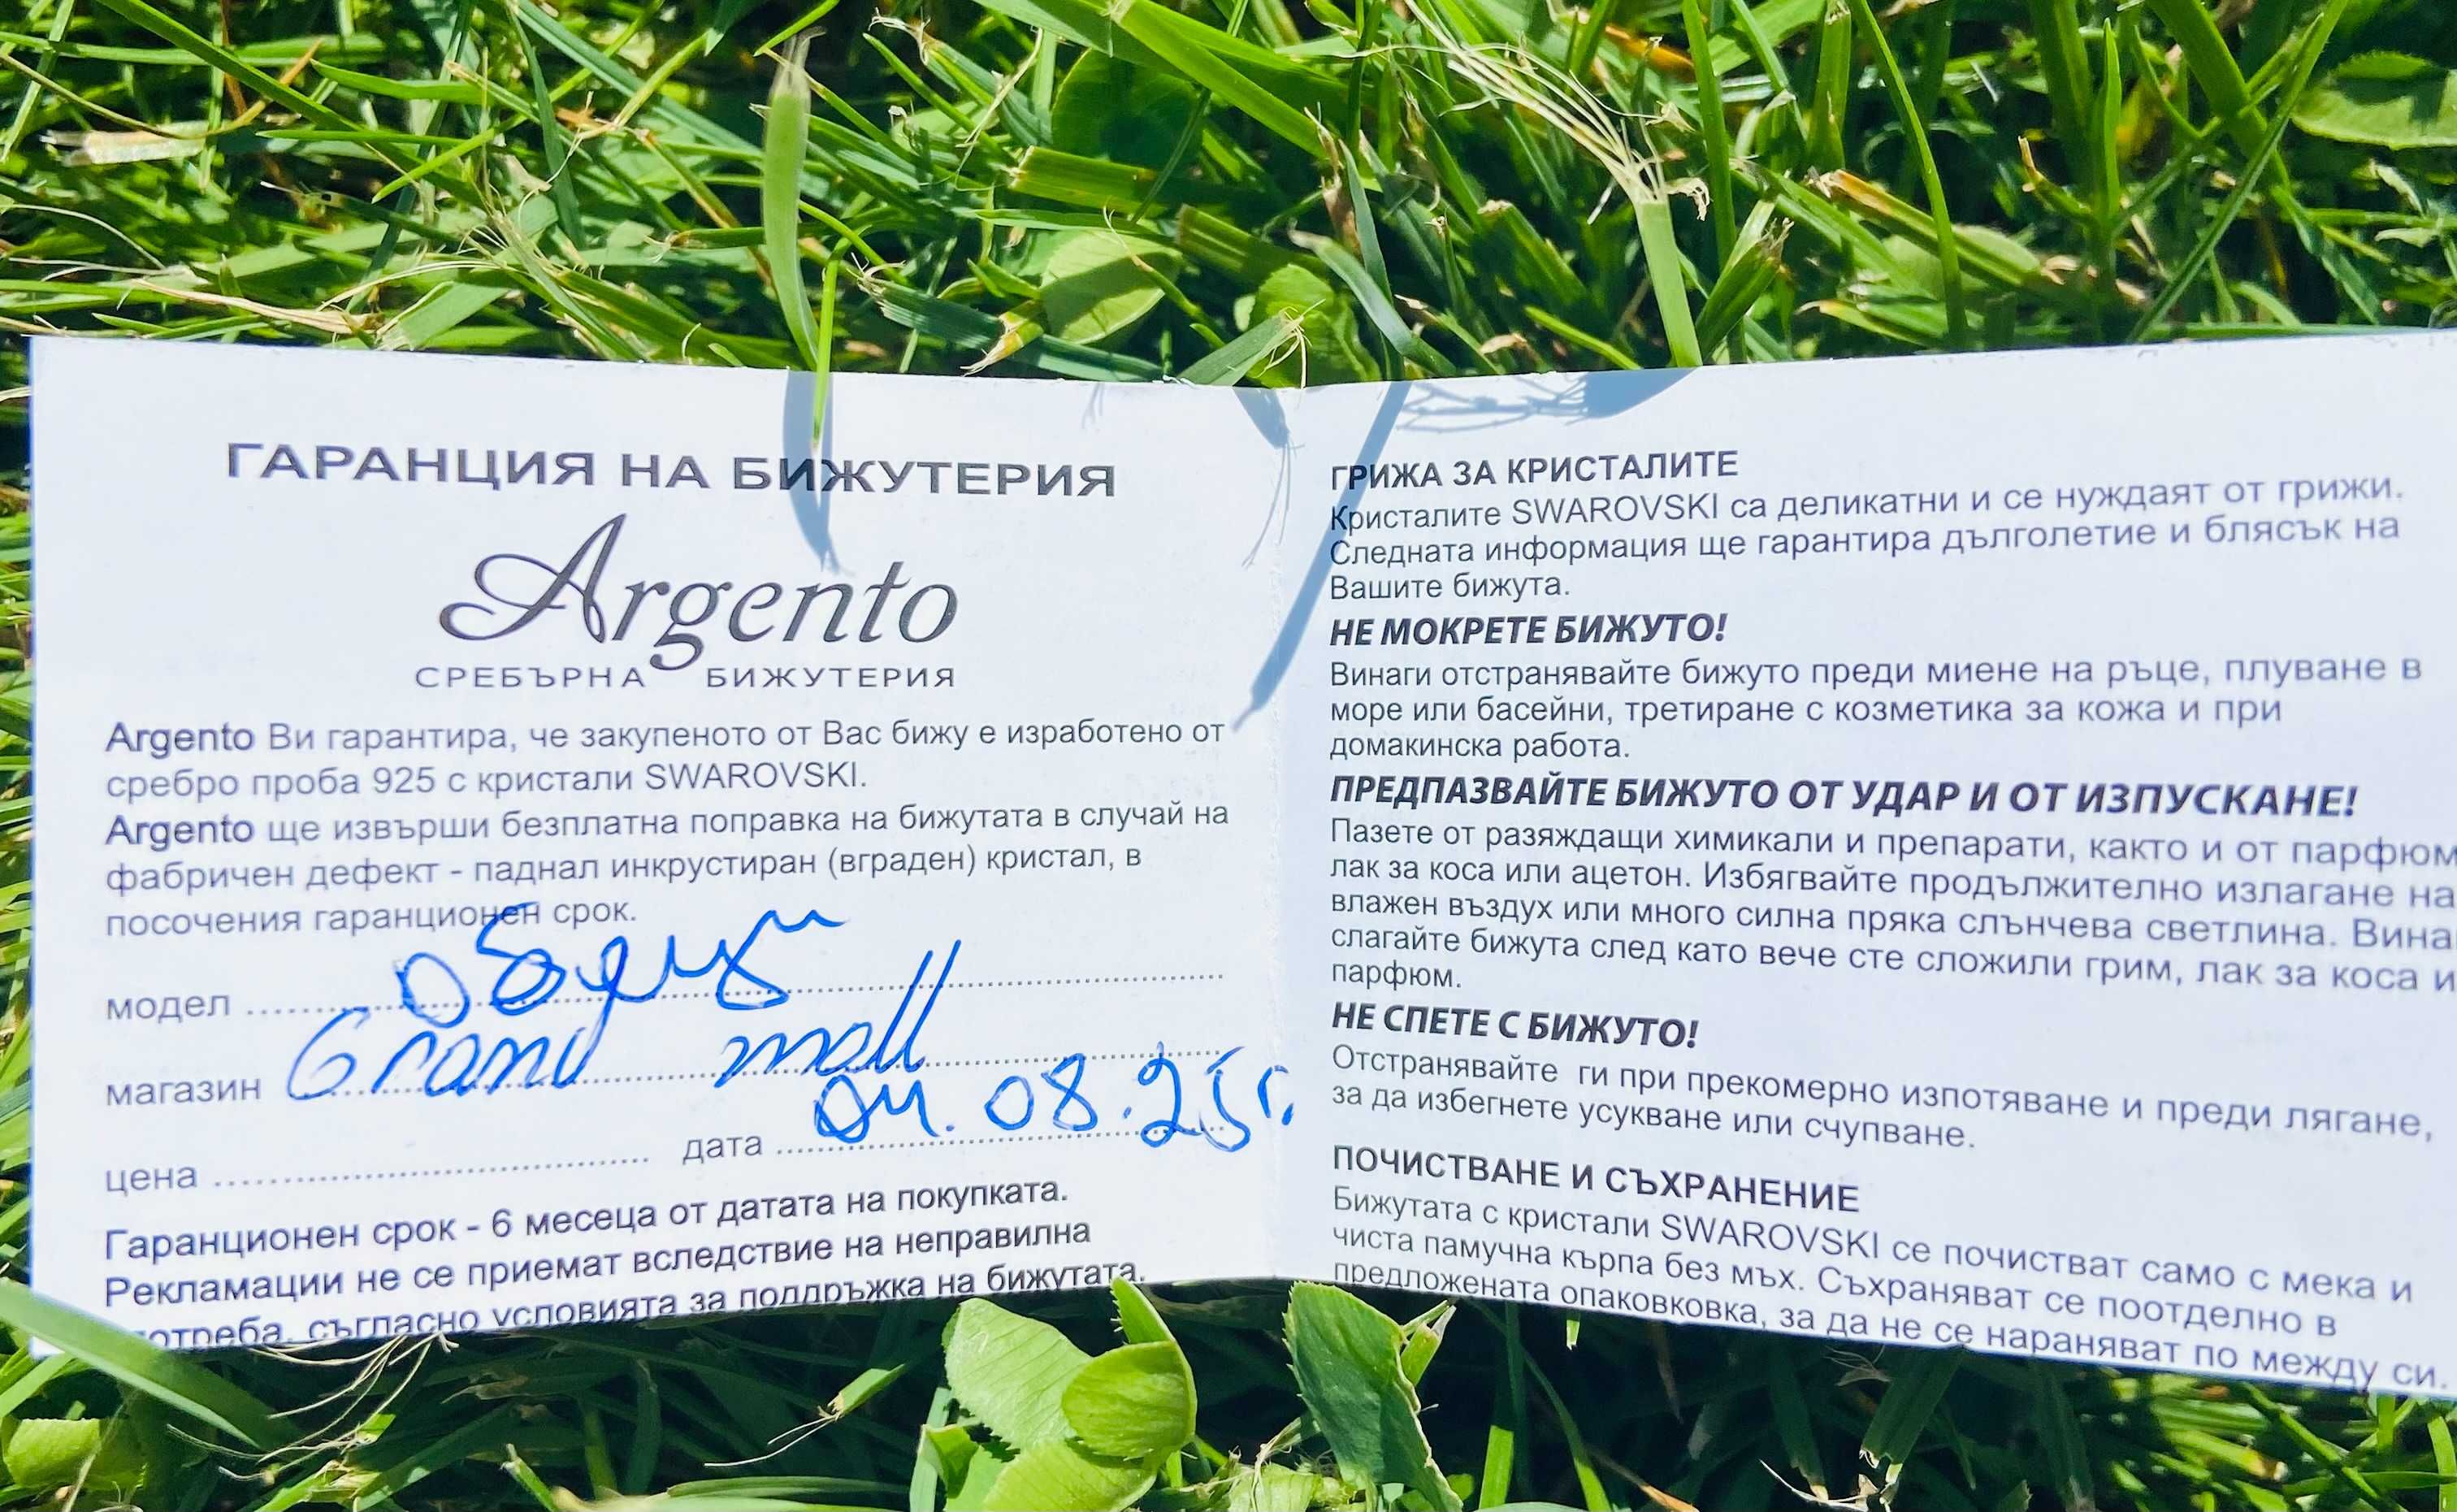 ГАРАНЦИЯ НА БИЖУТЕРИЯ
Argento
СРЕБЪРНА БИЖУТЕРИЯ
Argento Ви гарантира, че закупеното от Вас бижу е изработено от
сребро проба 925 с кристали SWAROVSKI.
Argento ще извърши безплатна поправка на бижутата в случай на
фабричен дефект - паднал инкрустиран (вграден) кристал, в
посочения гаранционен срок.
модел .......... обеци
магазин Grand mall
цена .......... дата .......... 04.08.25г.
Гаранционен срок - 6 месеца от датата на покупката.
Рекламации не се приемат вследствие на неправилна
отреба, съгласно условията за поддръжка на бижутата.
ГРИЖА ЗА КРИСТАЛИТЕ
Кристалите SWAROVSKI са деликатни и се нуждаят от грижи.
Следната информация ще гарантира дълголетие и блясък на
Вашите бижута.
НЕ МОКРЕТЕ БИЖУТО!
Винаги отстранявайте бижуто преди миене на ръце, плуване в
море или басейни, третиране с козметика за кожа и при
домакинска работа.
ПРЕДПАЗВАЙТЕ БИЖУТО ОТ УДАР И ОТ ИЗПУСКАНЕ!
Пазете от разяждащи химикали и препарати, както и от парфюм
лак за коса или ацетон. Избягвайте продължително излагане на
влажен въздух или много силна пряка слънчева светлина. Вина
слагайте бижута след като вече сте сложили грим, лак за коса и
парфюм.
НЕ СПЕТЕ С БИЖУТО!
Отстранявайте ги при прекомерно изпотяване и преди лягане,
за да избегнете усукване или счупване.
ПОЧИСТВАНЕ И СЪХРАНЕНИЕ
Бижутата с кристали SWAROVSKI се почистват само с мека и
чиста памучна кърпа без мъх. Съхраняват се поотделно в
предложената опаковковка, за да не се нараняват по между си.